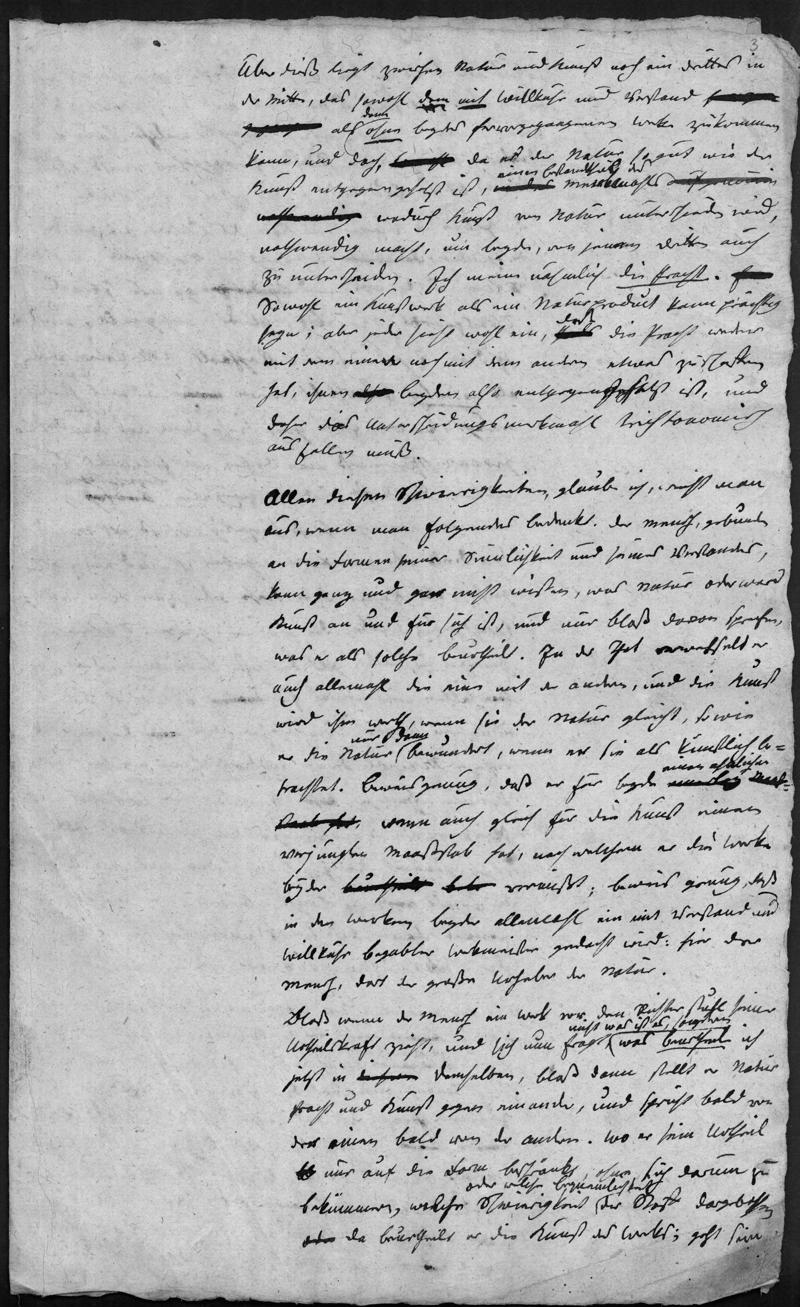 3
Über dieß liegt zwischen Natur und Kunst noch ein drittes in
der Mitte, das sowohl dem mit Willkühr und Verstand
dem
als ohne beydes hervorgegangenen Werke zukommen
kann, und doch, da es der Natur so gut wie der
Kunst entgegengesetzt ist, einen Bestandtheil des Merkmahls
wodurch Kunst von Natur unterschieden wird,
nothwendig macht, um beyde, von jenem dritten auch
zu unterscheiden. Ich meine nähmlich die Pracht.
Sowohl ein Kunstwerk als ein Naturproduct kann prächtig
seyn; aber jeder sieht wohl ein, daß die Pracht weder
mit dem einen noch mit dem andern etwas zu schaffen
hat, ihnen beyden also entgegengesetzt ist, und
daher das Unterscheidungsmerkmahl trichtonomisch
ausfallen muß.
Allen diesen Schwierigkeiten, glaube ich, weicht man
aus, wenn man folgendes bedenkt. Der Mensch, gebunden
an die Formen seiner Sinnlichkeit und seines Verstandes,
kann ganz und gar nicht wissen, was Natur oder was
Kunst an und für sich ist, und nur bloß davon sprechen,
was er als solche beurtheilt. In der That verwechselt er
auch allemahl die eine mit der andern, und die Kunst
wird ihm werth, wenn sie der Natur gleicht, so wie
er die Natur nur dann bewundert, wenn er sie als künstlich be-
trachtet. Beweis genung, daß er für beyde einen ähnlichen
wenn auch gleich für die Kunst einen
verjüngten Maasstab hat, nach welchem er die Werke
beyder ermißt; beweis genung, daß
in den Werken beyder allemahl ein mit Verstand und
Willkühr begabter Werkmeister gedacht wird: hier der
Mensch, dort der große Urheber der Natur.
Bloß wenn der Mensch ein Werk vor den Richterstuhl seiner
Urtheilskraft zieht, und sich nun fragt nicht was ist es, sondern was beurtheile ich
jetzt in demselben, bloß dann stellt er Natur
Pracht und Kunst gegen einander, und spricht bald von
der einen bald von der andern. Wo er sein Urtheil
nur auf die Form beschränkt, ohne sich darum zu
bekümmern, welche Schwierigkeit oder welche Bequemlichkeit der Stoff dargebothen
da beurtheilt er die Kunst des Werks; geht sein